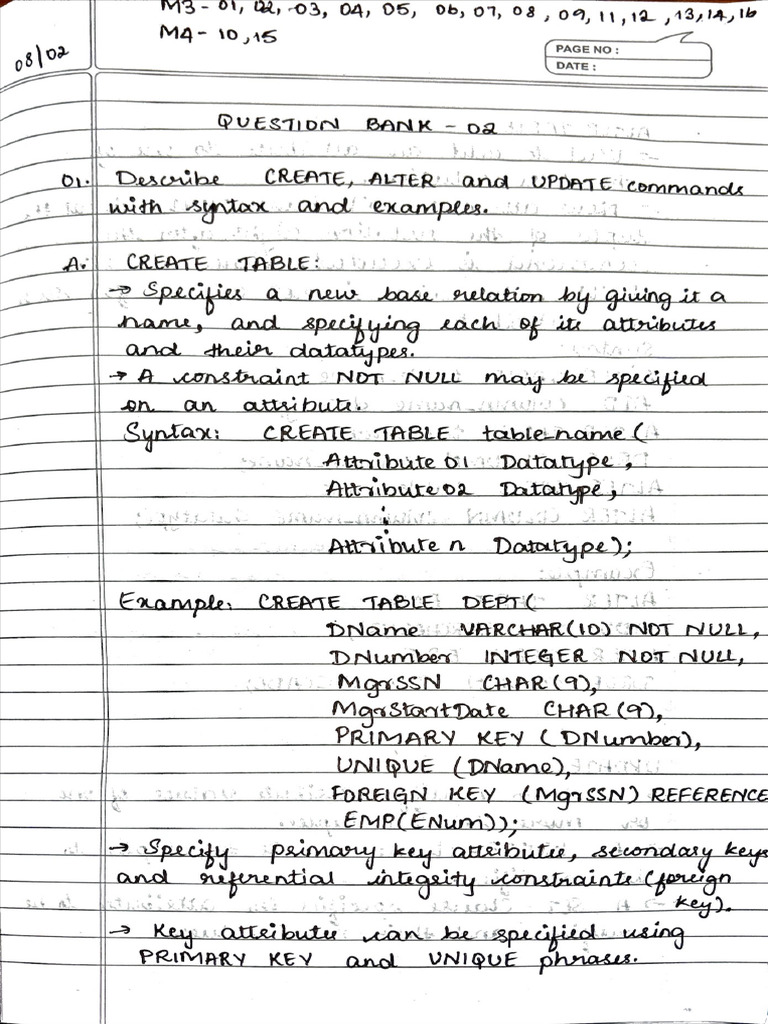 M3 - 01, 02, 03, 04, 05, 06, 07, 08, 09, 11, 12, 13, 14, 16
M4 - 10, 15
08/02
PAGE NO :
DATE :
QUESTION BANK - 02
01. Describe CREATE, ALTER and UPDATE commands
with syntax and examples.
A. CREATE TABLE:
→ Specifies a new base relation by giving it a
name, and specifying each of its attributes
and their datatypes.
→ A constraint NOT NULL may be specified
on an attribute.
Syntax: CREATE TABLE table_name (
Attribute 01 Datatype,
Attribute 02 Datatype,
⋮
Attribute n Datatype);
Example: CREATE TABLE DEPT(
DName VARCHAR(10) NOT NULL,
DNumber INTEGER NOT NULL,
MgrSSN CHAR(9),
MgrStartDate CHAR(9),
PRIMARY KEY (DNumber),
UNIQUE (DName),
FOREIGN KEY (MgrSSN) REFERENCE
EMP(ENum));
→ Specify primary key attributes, secondary keys
and referential integrity constraints (foreign
key).
→ Key attributes can be specified using
PRIMARY KEY and UNIQUE phrases.